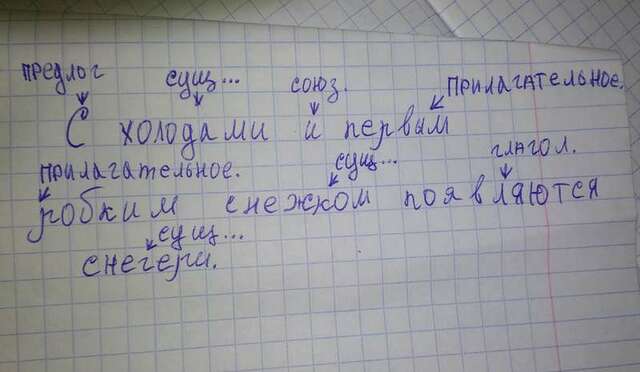 предлог сущ... союз. прилагательное.
С холодами и первым
прилагательное. сущ... глагол.
робким снежком появляются
сущ...
снегери.